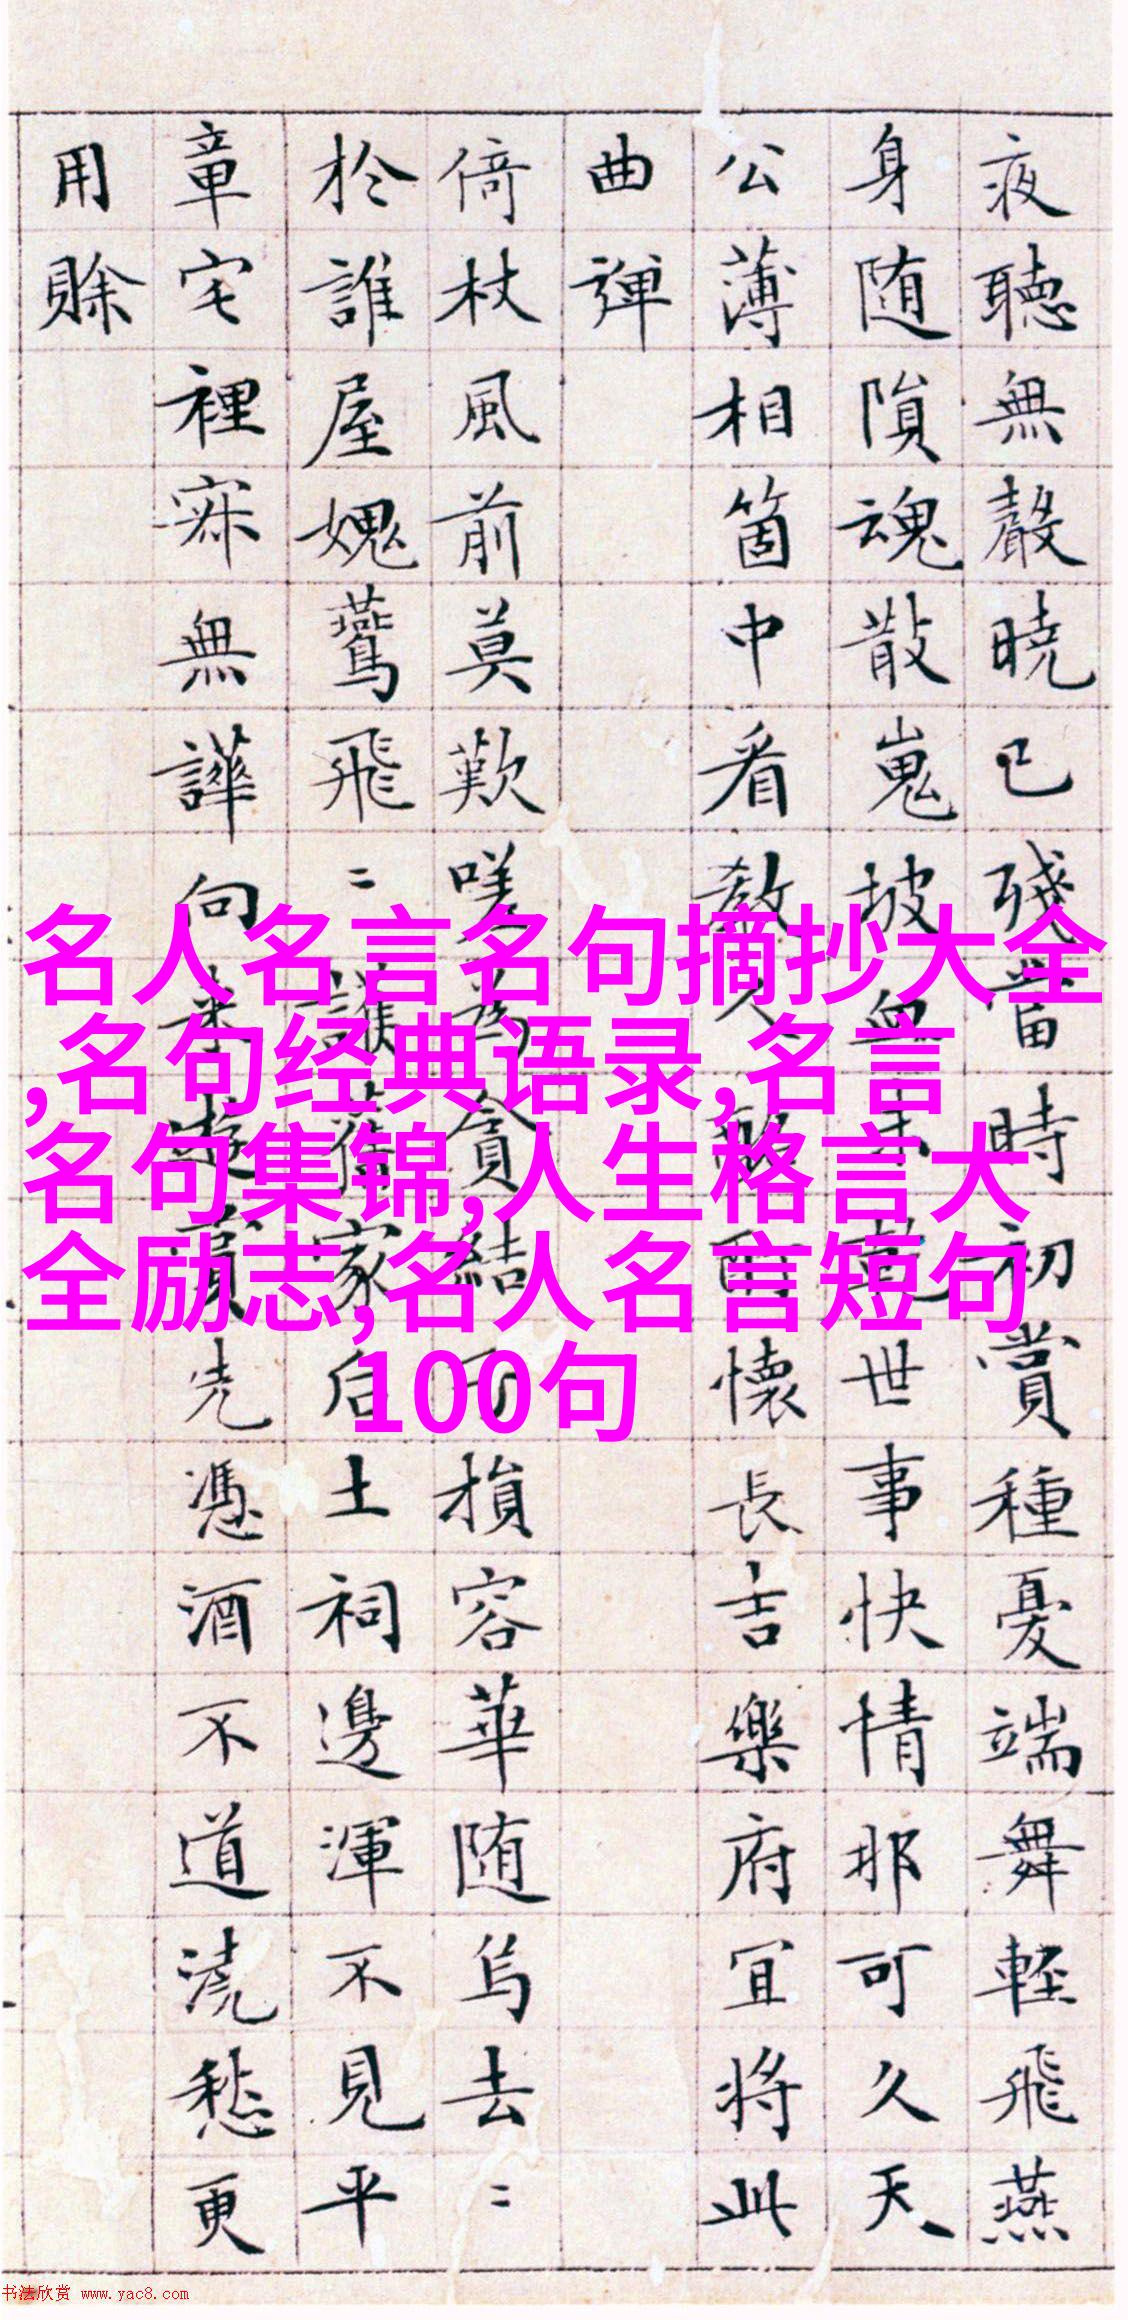 夜聽無聲曉已殘當時初賞種憂端舞輕飛燕
身随隕魂散嵬坡血世事快情那可久天
公薄相箇中看教人懷長吉樂府宜将此
曲彈
倚杖風前莫歎嘆為貪結子損容華随烏去〻
於誰屋媿鶯飛〻護舊家后土祠邊渾不見平
章宅裡寐無譁向来遊賞先憑酒不道澆愁更
用賒
名人名言名句摘抄大全
,名句经典语录,名言
名句集锦,人生格言大
全励志,名人名言短句
100句
书法欣赏 www.yac8.com